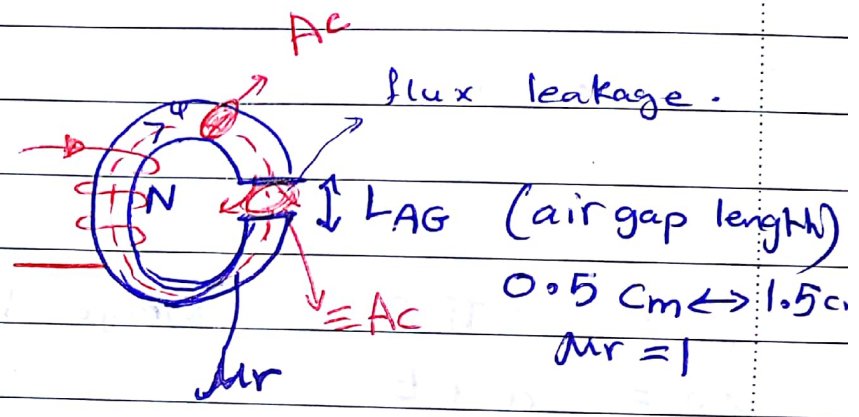 Ac
flux leakage.
φ
N
LAG (air gap lenghth)
0.5 cm ↔ 1.5c
= Ac
μr = 1
μr